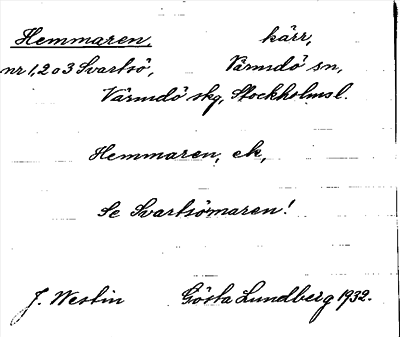 Hemmaren, kärr,
nr 1, 2 o 3 Svartsö, Värmdö sn,
Värmdö skg, Stockholmsl.
Hemmaren, ek,
Se Svartsömaren!
J. Westin Gösta Lundberg 1932.